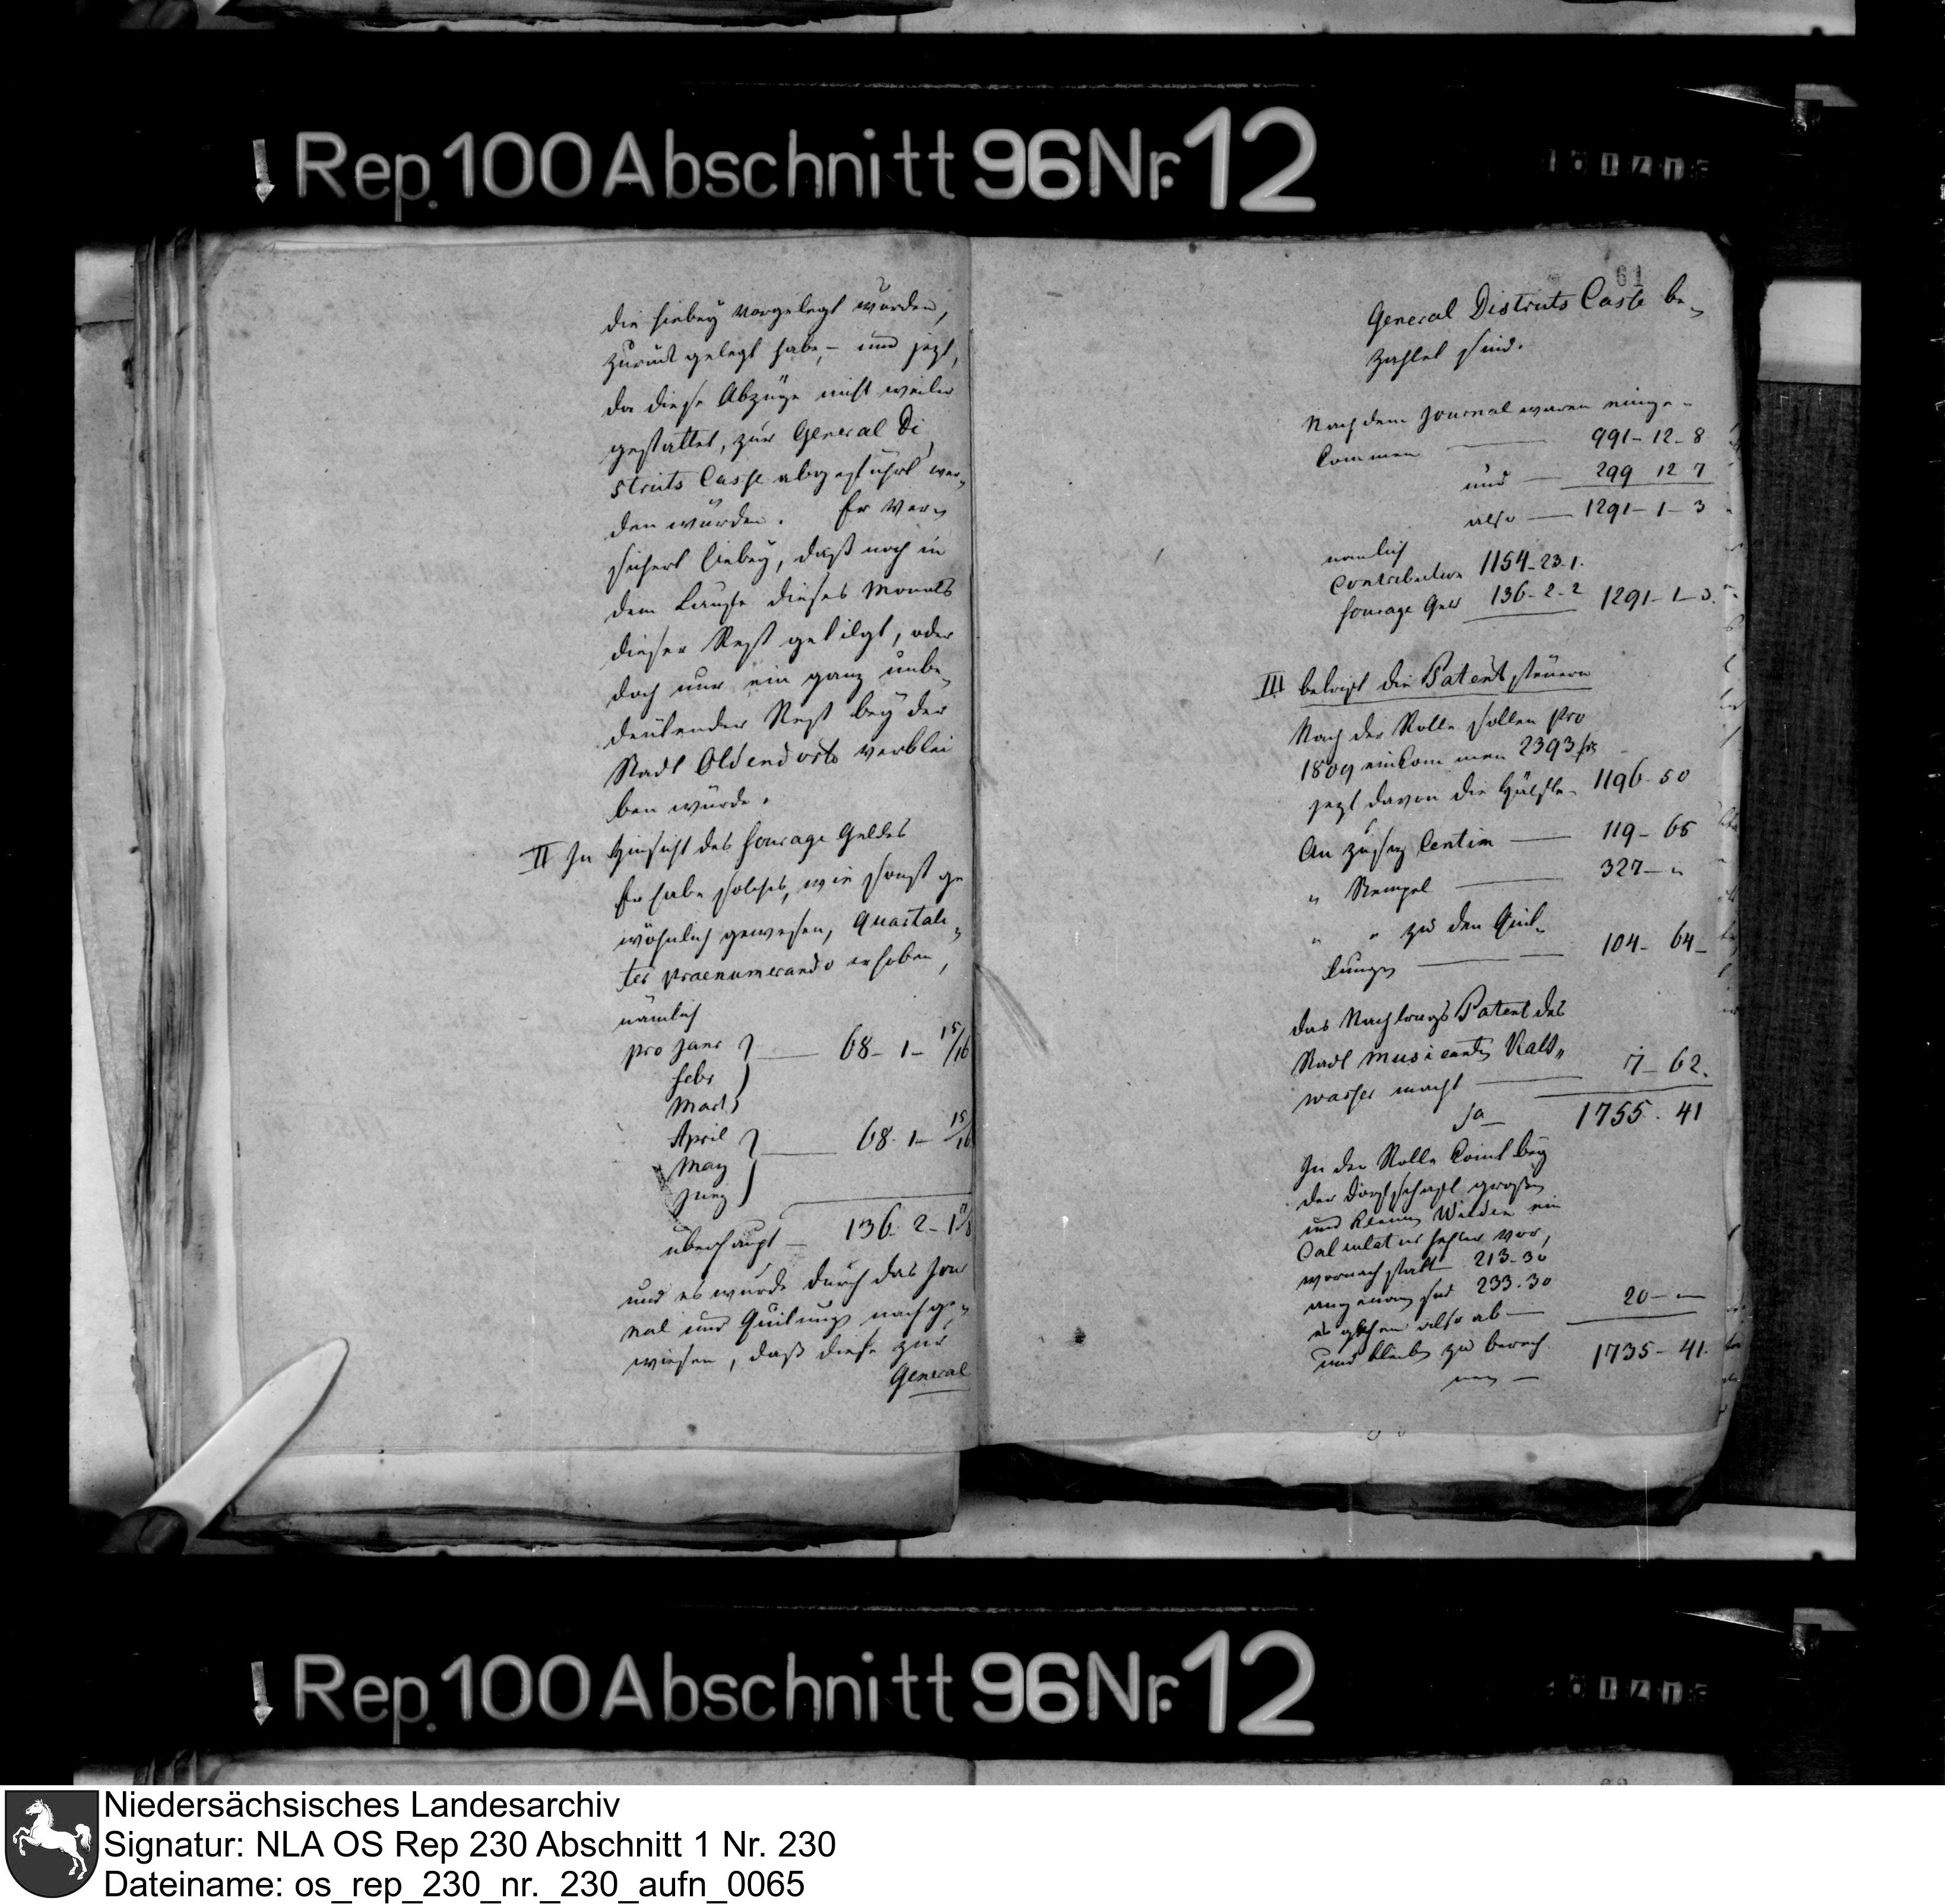 Rep. 100 Abschnitt 96 Nr. 12
die hiebey vorgelegt wurden,
zurück gelegt habe, – und jezt,
da diese Abzüge nicht weiter
gestattet, zur General Di
stricts Casse abgeführt wer„
den würden. Er ver„
sichert hiebey, daß noch in
dem Laufe dieses Monats
dieser Rest getilgt, oder
doch nur ein ganz unbe„
deutender Rest bey der
Stadt Oldendorf verblei
ben würde.
II In Hinsicht des fourage Geldes
Er habe solches, wie sonst ge
wöhnlich gewesen, Quartali„
ter praenumerando erhoben,
nämlich
pro Janr } — 68 – 1 – 15/16
Febr
Mart
April } — 68. 1 – 15/16
May
Juny
überhaupt — 136. 2 – 1 7/8
und es wurde durch das Jour
nal und Quitungen nachge„
wiesen, daß diese zur
General
61
General Districts Casse be„
zahlet sind.
Nach dem Journal waren einge–
kommen — 991 – 12 – 8
und — 299 12 7
also — 1291 – 1 – 3
nämlich
Contribution 1154 – 23 – 1.
fourage Geld 136 – 2 – 2 1291 – 1 – 3.
III betrift die Patent steuern
Nach der Rolle sollen pro
1809 einkommen 2393 frs
jezt davon die Hälfte – 1196 – 50
An Zusaz Centim — 119 – 65
" Stempel — 327 – "
" " zu den Quit„
tungen — 104 – 64 –
das Nachtrags Patent des
Stadt musicanten Kalt„
wasser macht — 7 – 62.
Sa — 1755. 41
In der Rolle komt bey
der Dorfschaft großen
und kleinen Wilden ein
Calculatur fehler vor,
wornach statt 213 – 30
angenom̅en sind 233. 30
es gehen also ab — 20 – "
und bleiben zu berech
nen — 1735 – 41.
Rep. 100 Abschnitt 96 Nr. 12
Niedersächsisches Landesarchiv
Signatur: NLA OS Rep 230 Abschnitt 1 Nr. 230
Dateiname: os_rep_230_nr._230_aufn_0065